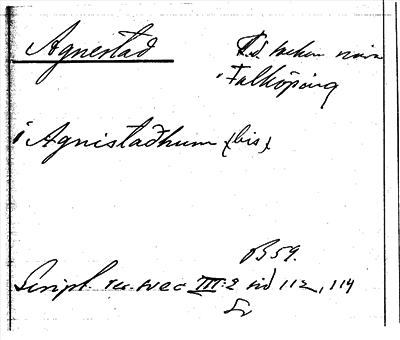 Agnestad
socken nära
Falköping
i Agnistadhum (bis)
B 59.
Script. rer. svec III:2 sid 112, 114